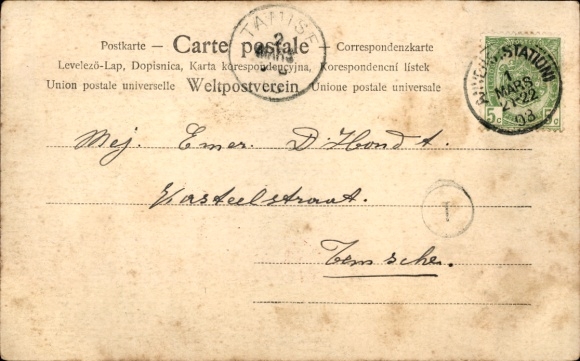 Postkarte – Carte postale – Correspondenzkarte
Levelező-Lap, Dopisnica, Karta korespondencyjna, Korespondencní lístek
Union postale universelle Weltpostverein Unione postale universale
TAMISE
2
MARS
ANVERS (STATION)
1
MARS
21-22
03
5c 5c
Mej. Emer. D'Hondt.
Kasteelstraat.
1
Temsche.